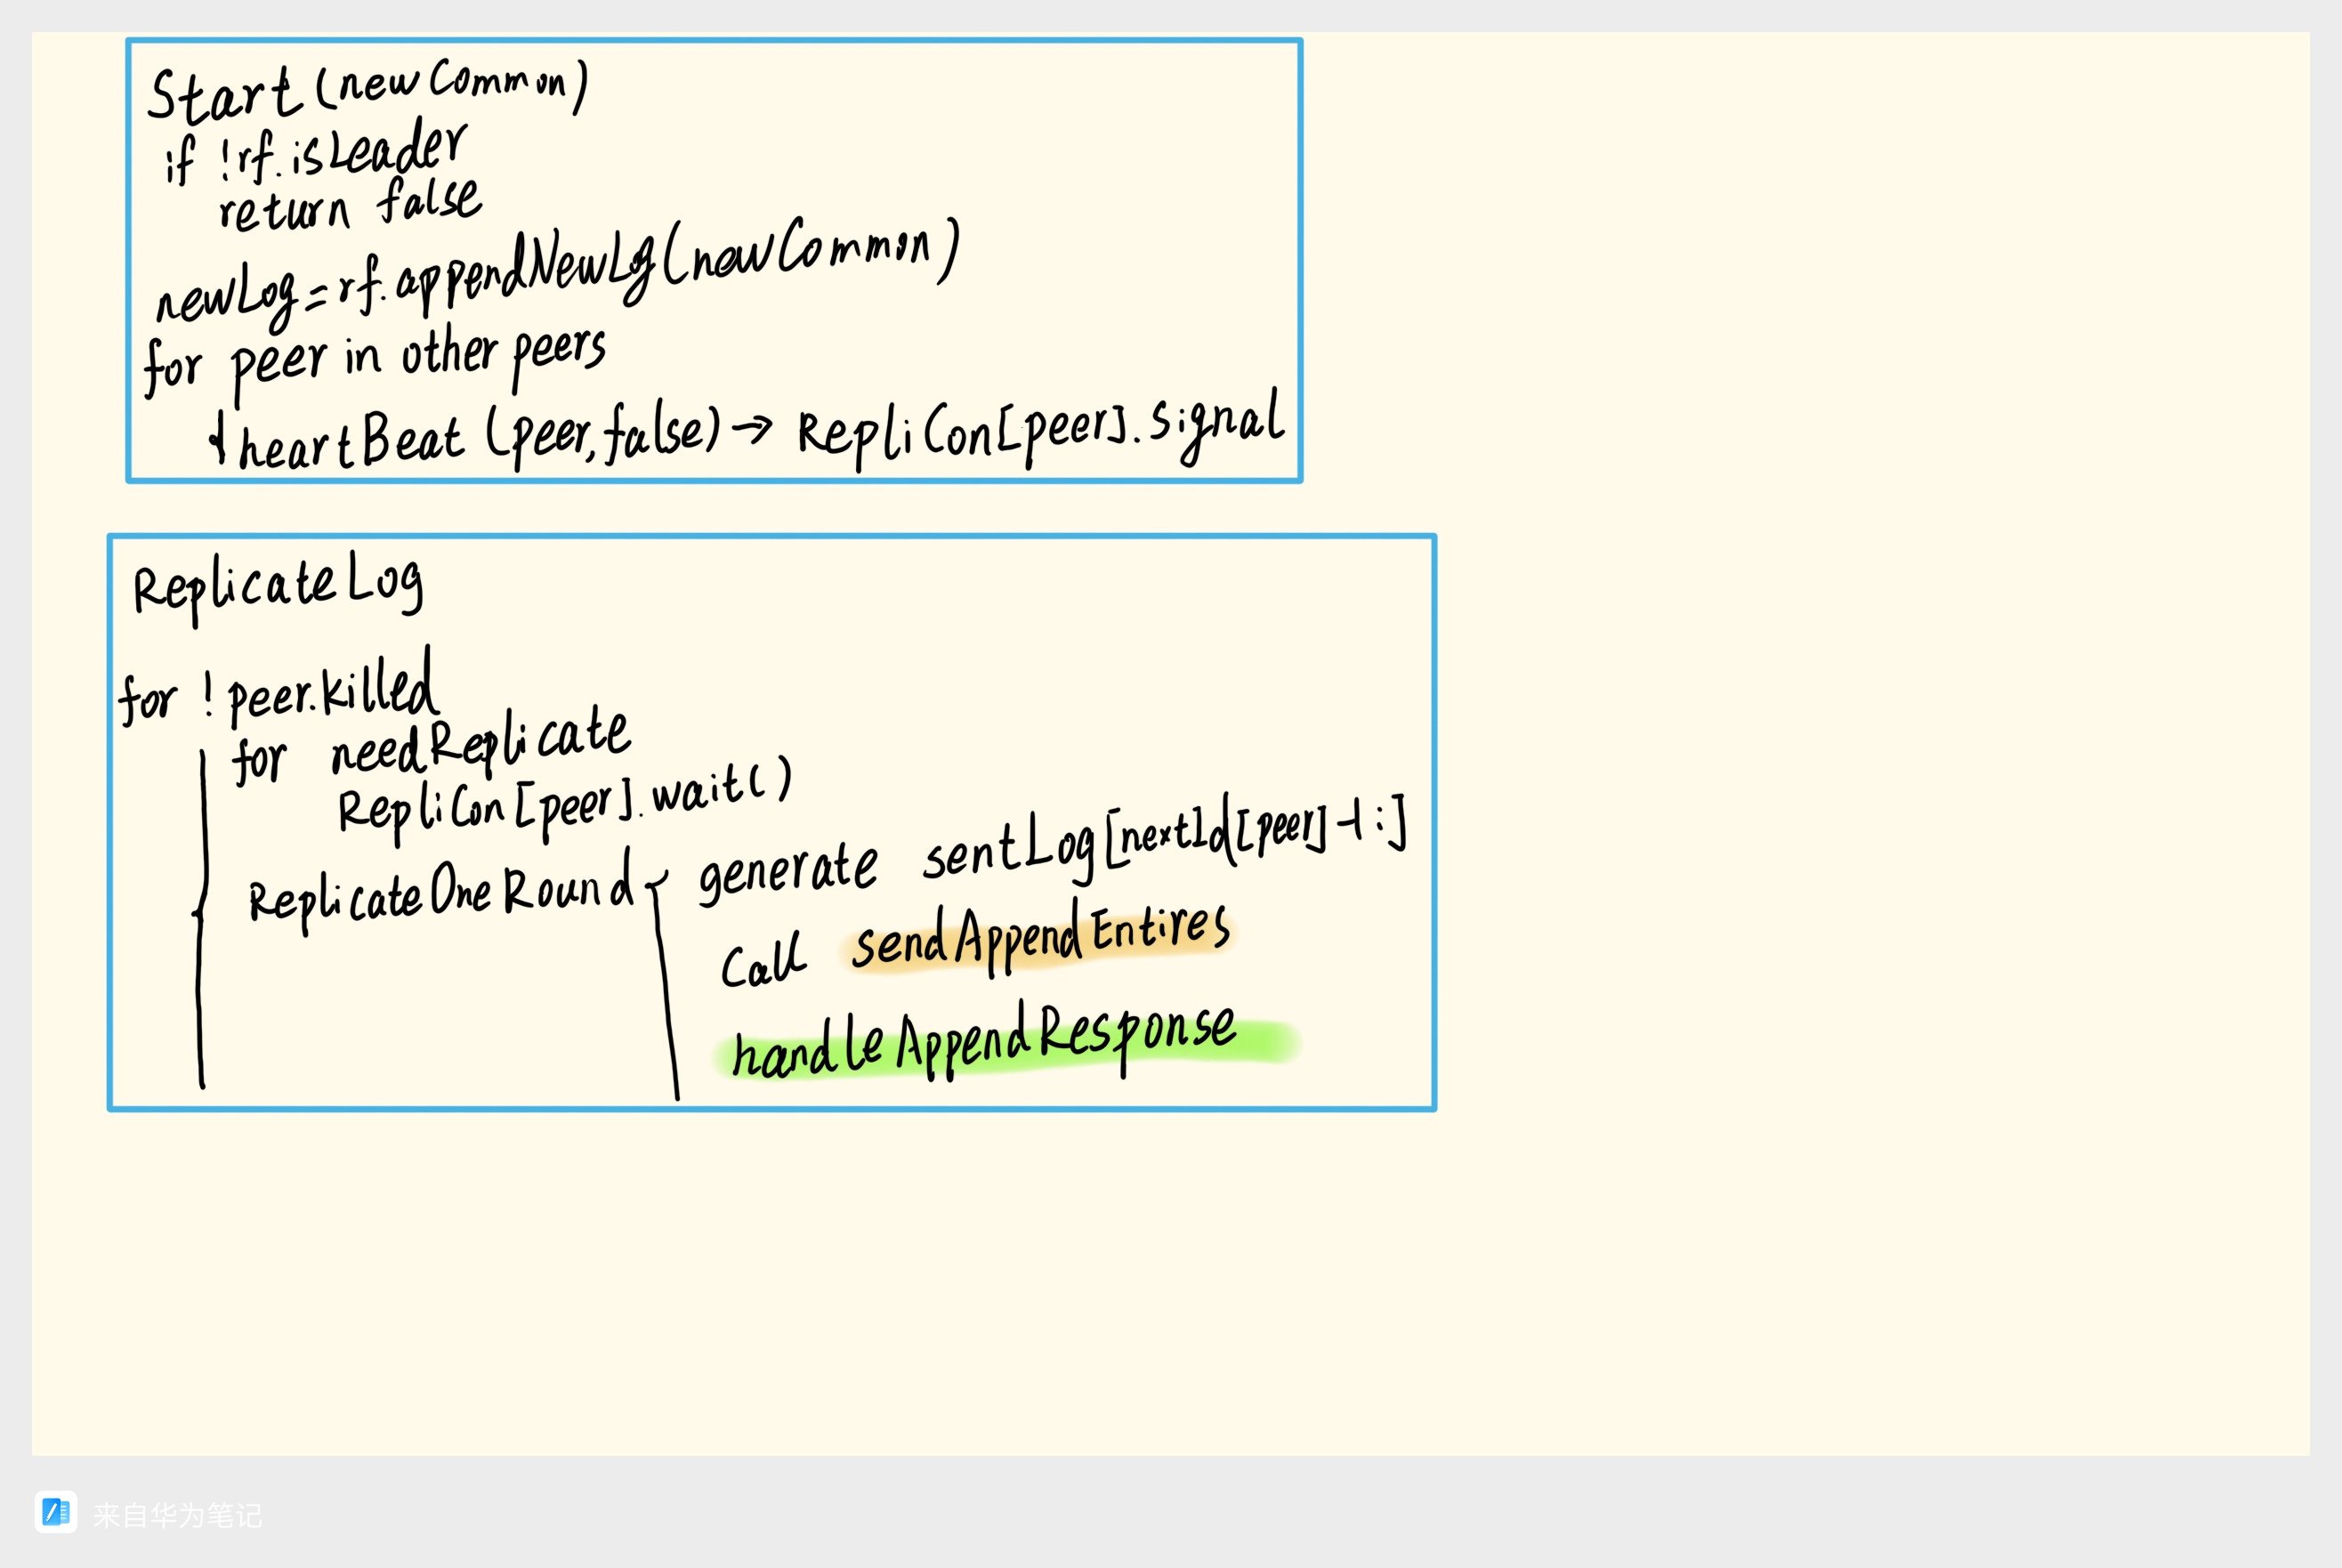 Start (newCommon)
if !rf.isLeader
return false
newLog=rf.appendNewLog(newCommon)
for peer in other peers
heartBeat (peer,false) → RepliCon[peer].signal
ReplicateLog
for !peer.killed
for needReplicate
RepliCon[peer].wait()
ReplicateOneRound
generate sentLog[nextId[peer]-1:]
Call sendAppendEntires
handleAppendResponse
来自华为笔记